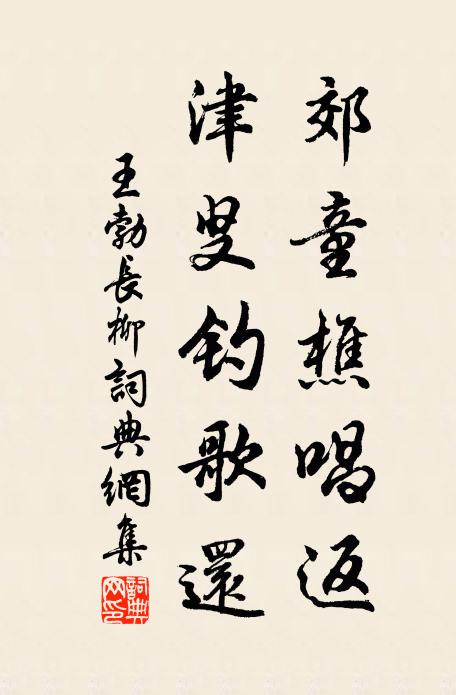 郊童樵唱返
津叟釣歌還
王勃長柳詞典網集
詞典網印